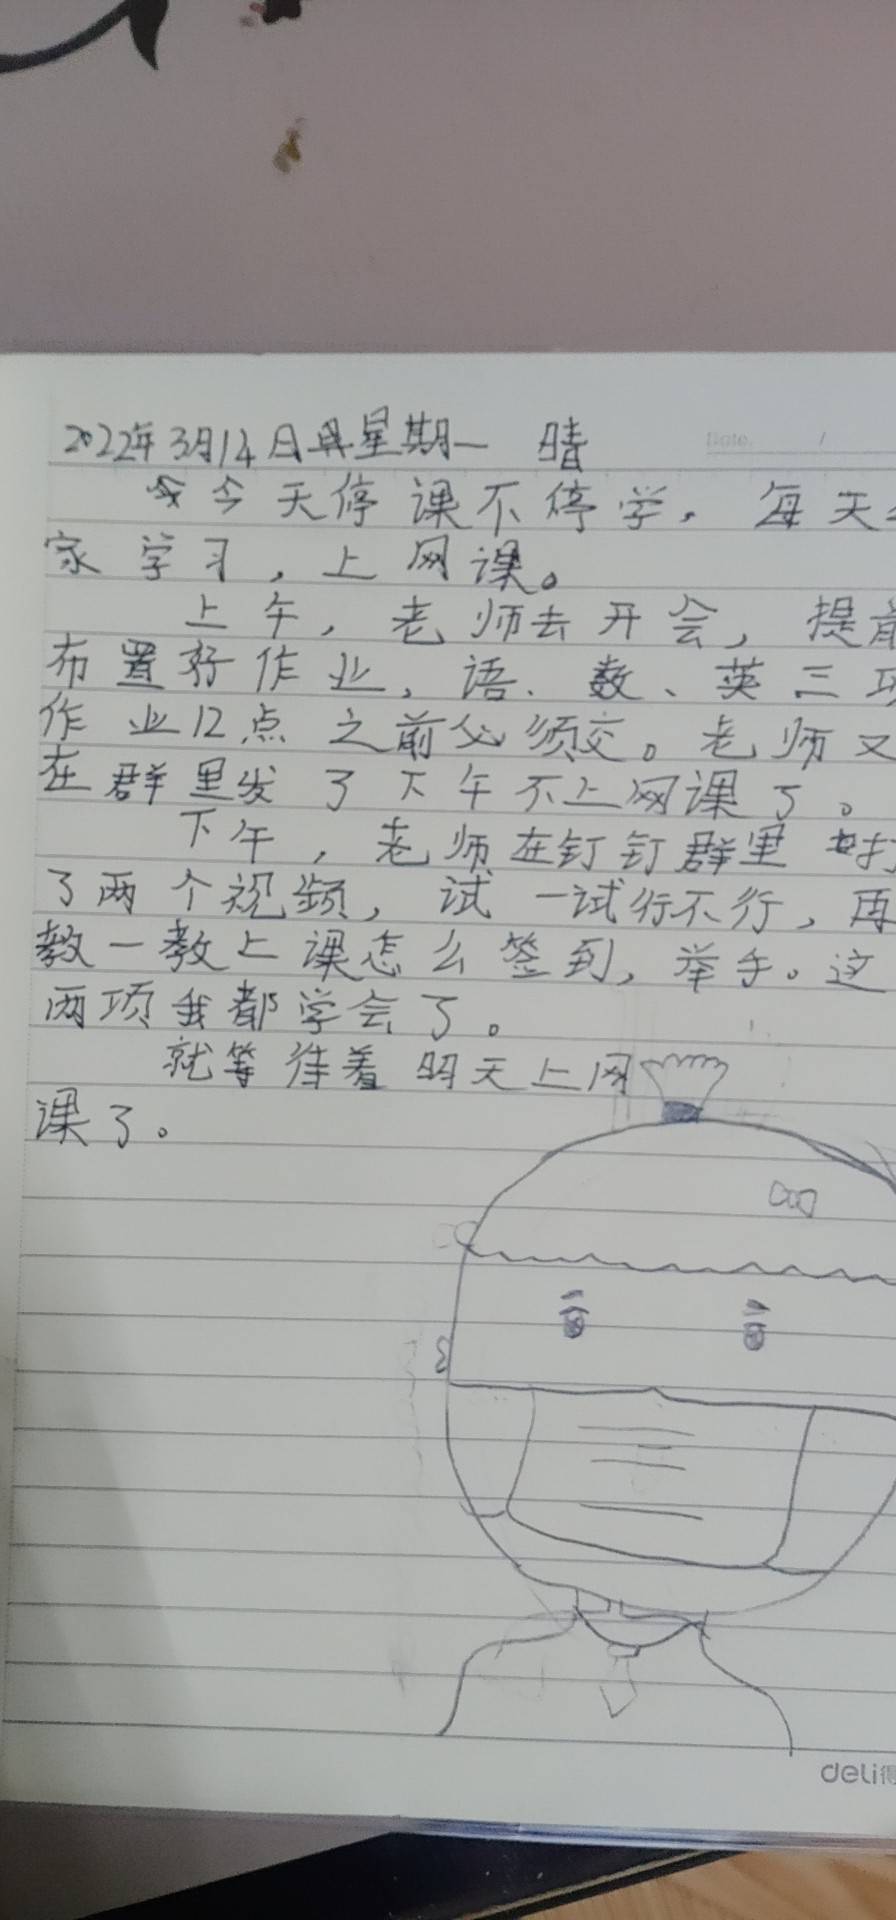 2022年3月14日星期一 晴
Date. /
今天停课不停学，每天
家学习，上网课。
上午，老师去开会，提前
布置好作业，语、数、英三项
作业12点之前必须交。老师又
在群里发了下午不上网课了。
下午，老师在钉钉群里打
了两个视频，试一试行不行，再
教一教上课怎么签到，举手。这
两项我都学会了。
就等待着明天上网
课了。
deli得